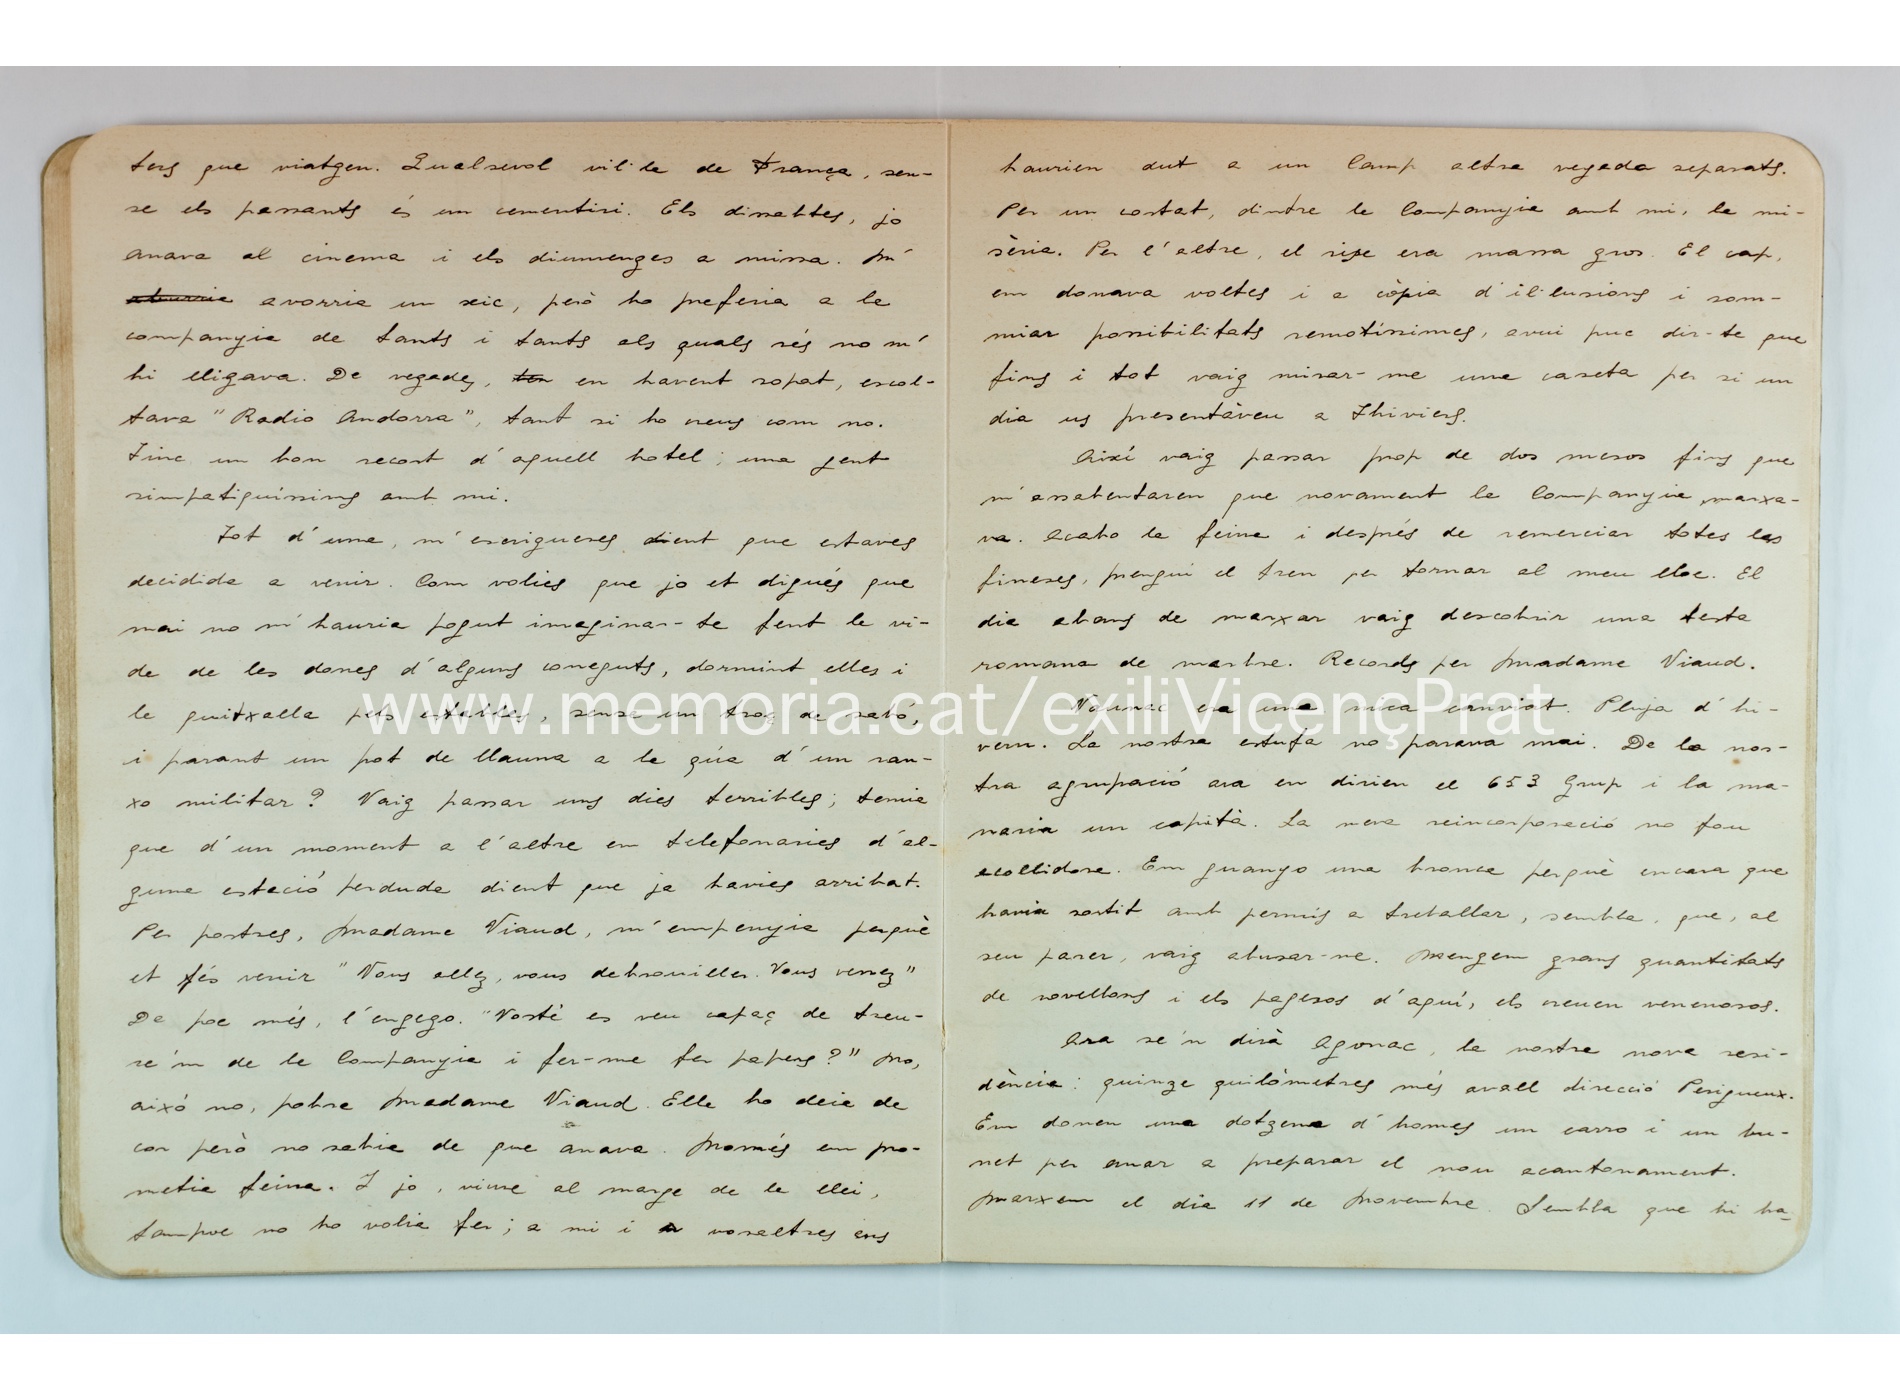 ters que viatgen. Qualsevol vil·la de França, sen-
se els passants és un cementiri. Els dissabtes, jo
anava al cinema i els diumenges a missa. M'
aburria avorria un xic, però ho preferia a la
companyia de tants i tants als quals rés no m'
hi lligava. De vegades, en havent sopat, escol-
tava "Radio Andorra", tant si ho creus com no.
Tinc un bon record d'aquell hotel; una gent
simpatiquíssims amb mi.
Tot d'una, m'escrigueres dient que estaves
decidida a venir. Com volies que jo et digués que
mai no m'hauria pogut imaginar-te fent la vi-
da de les dones d'alguns coneguts, dormint elles i
la quitxalla pels estables, sense un troç de sabó,
i parant un pot de llauna a la qúa d'un ran-
xo militar? Vaig passar uns dies terribles; temia
que d'un moment a l'altre em telefonaries d'al-
guna estació perduda dient que ja havies arribat.
Per postres, Madame Viaud, m'empenyia perquè
et fés venir "Vous allez, vous debrouiller. Vous verrez"
De poc més, l'engego. "Vosté es veu capaç de treu-
re'm de la Companyia i fer-me fer papers?" No,
aixó no, pobre Madame Viaud. Ella ho deia de
cor però no sabia de que anava. Només em pro-
metia feina. I jo, viure al marge de la llei,
tampoc no ho volia fer; a mi i a vosaltres ens
haurien dut a un Camp altra vegada separats.
Per un costat, dintre la Companyia amb mi, la mi-
sèria. Per l'altre, el risc era massa gros. El cap,
em donava voltes i a còpia d'il·lusions i som-
miar possibilitats remotíssimes, avui puc dir-te que
fins i tot vaig mirar-me una caseta per si un
dia us presentàveu a Thiviers.
Aixì vaig passar prop de dos mesos fins que
m'assabentaren que novament la Companyia marxa-
va. Acabo la feina i després de remerciar totes les
fineses, prenguí el tren per tornar al meu lloc. El
dia abans de marxar vaig descobrir una testa
romana de marbre. Records per Madame Viaud.
Vaunac era una mica canviat. Pluja d'hi-
vern. La nostra estufa no parava mai. De la nos-
tra agrupació ara en dirien el 653 Grup i la ma-
naria un capità. La meva reincorporació no fou
acollidora. Em guanyo una bronca perquè encara que
havia sortit amb permís a treballar, sembla, que, al
seu parer, vaig abusar-ne. Mengem grans quantitats
de rovellons i els pagesos d'aquí, els creuen venenosos.
Ara se'n dirà Agonac, la nostra nova resi-
dència: quinze quilòmetres més avall direcció Perigueux.
Em donen una dotzena d'homes un carro i un bu-
rret per anar a preparar el nou acantonament.
Marxem el dia 11 de Novembre. Sembla que hi ha-
www.memoria.cat/exiliVicençPrat